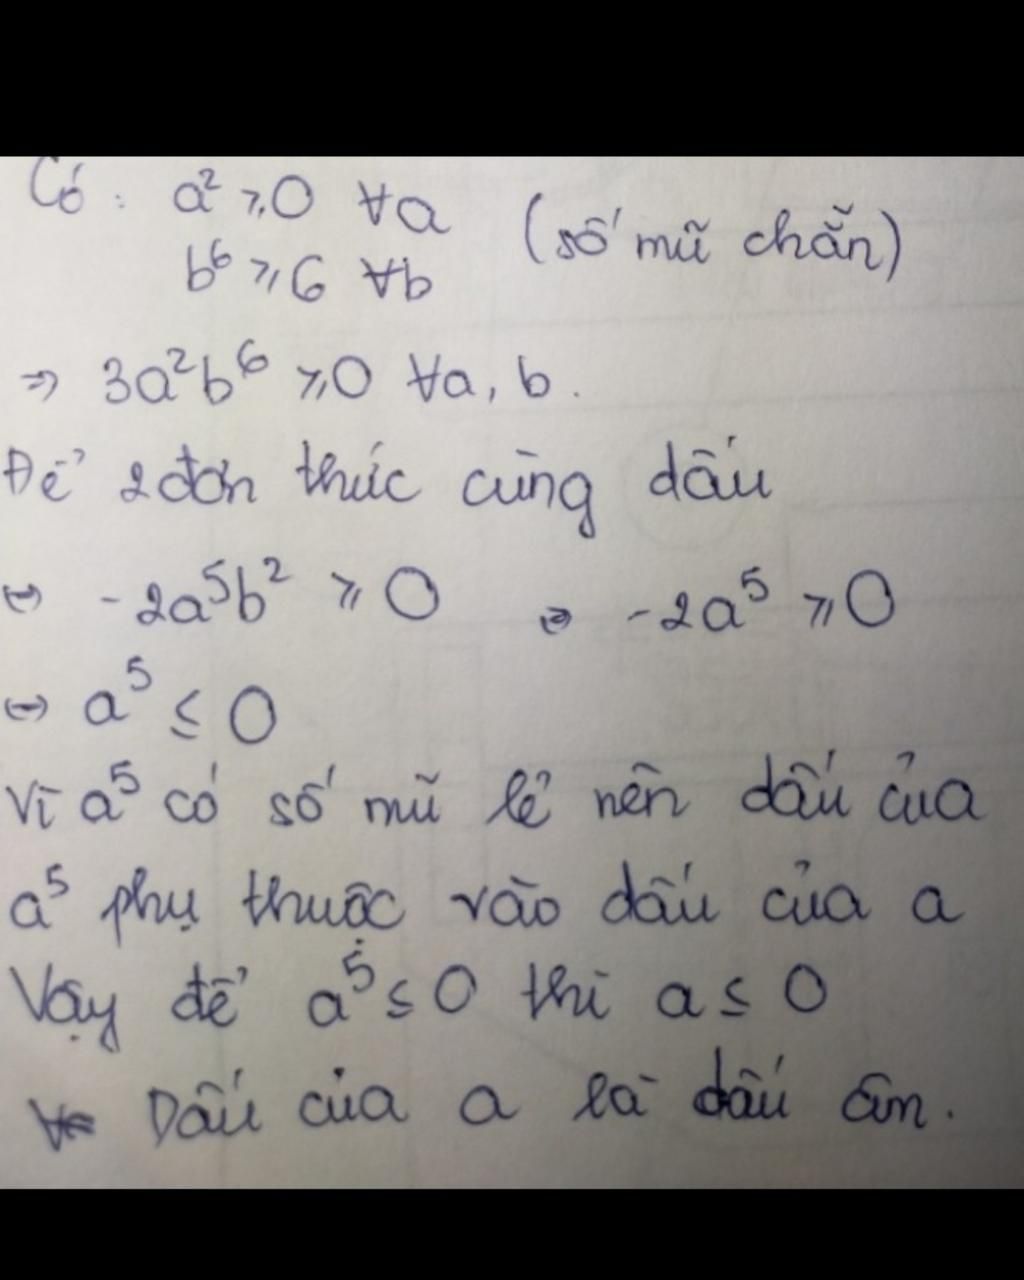 Có: a² ⩾ 0 ∀a (số mũ chẵn)
b⁶ ⩾ 6 ∀b
=> 3a²b⁶ ⩾ 0 ∀a, b.
Để 2 đơn thức cùng dấu
<=> -2a⁵b² ⩾ 0 <=> -2a⁵ ⩾ 0
<=> a⁵ ≤ 0
Vì a⁵ có số mũ lẻ nên dấu của
a⁵ phụ thuộc vào dấu của a
Vậy để a⁵ ≤ 0 thì a ≤ 0
Dấu của a là dấu âm.